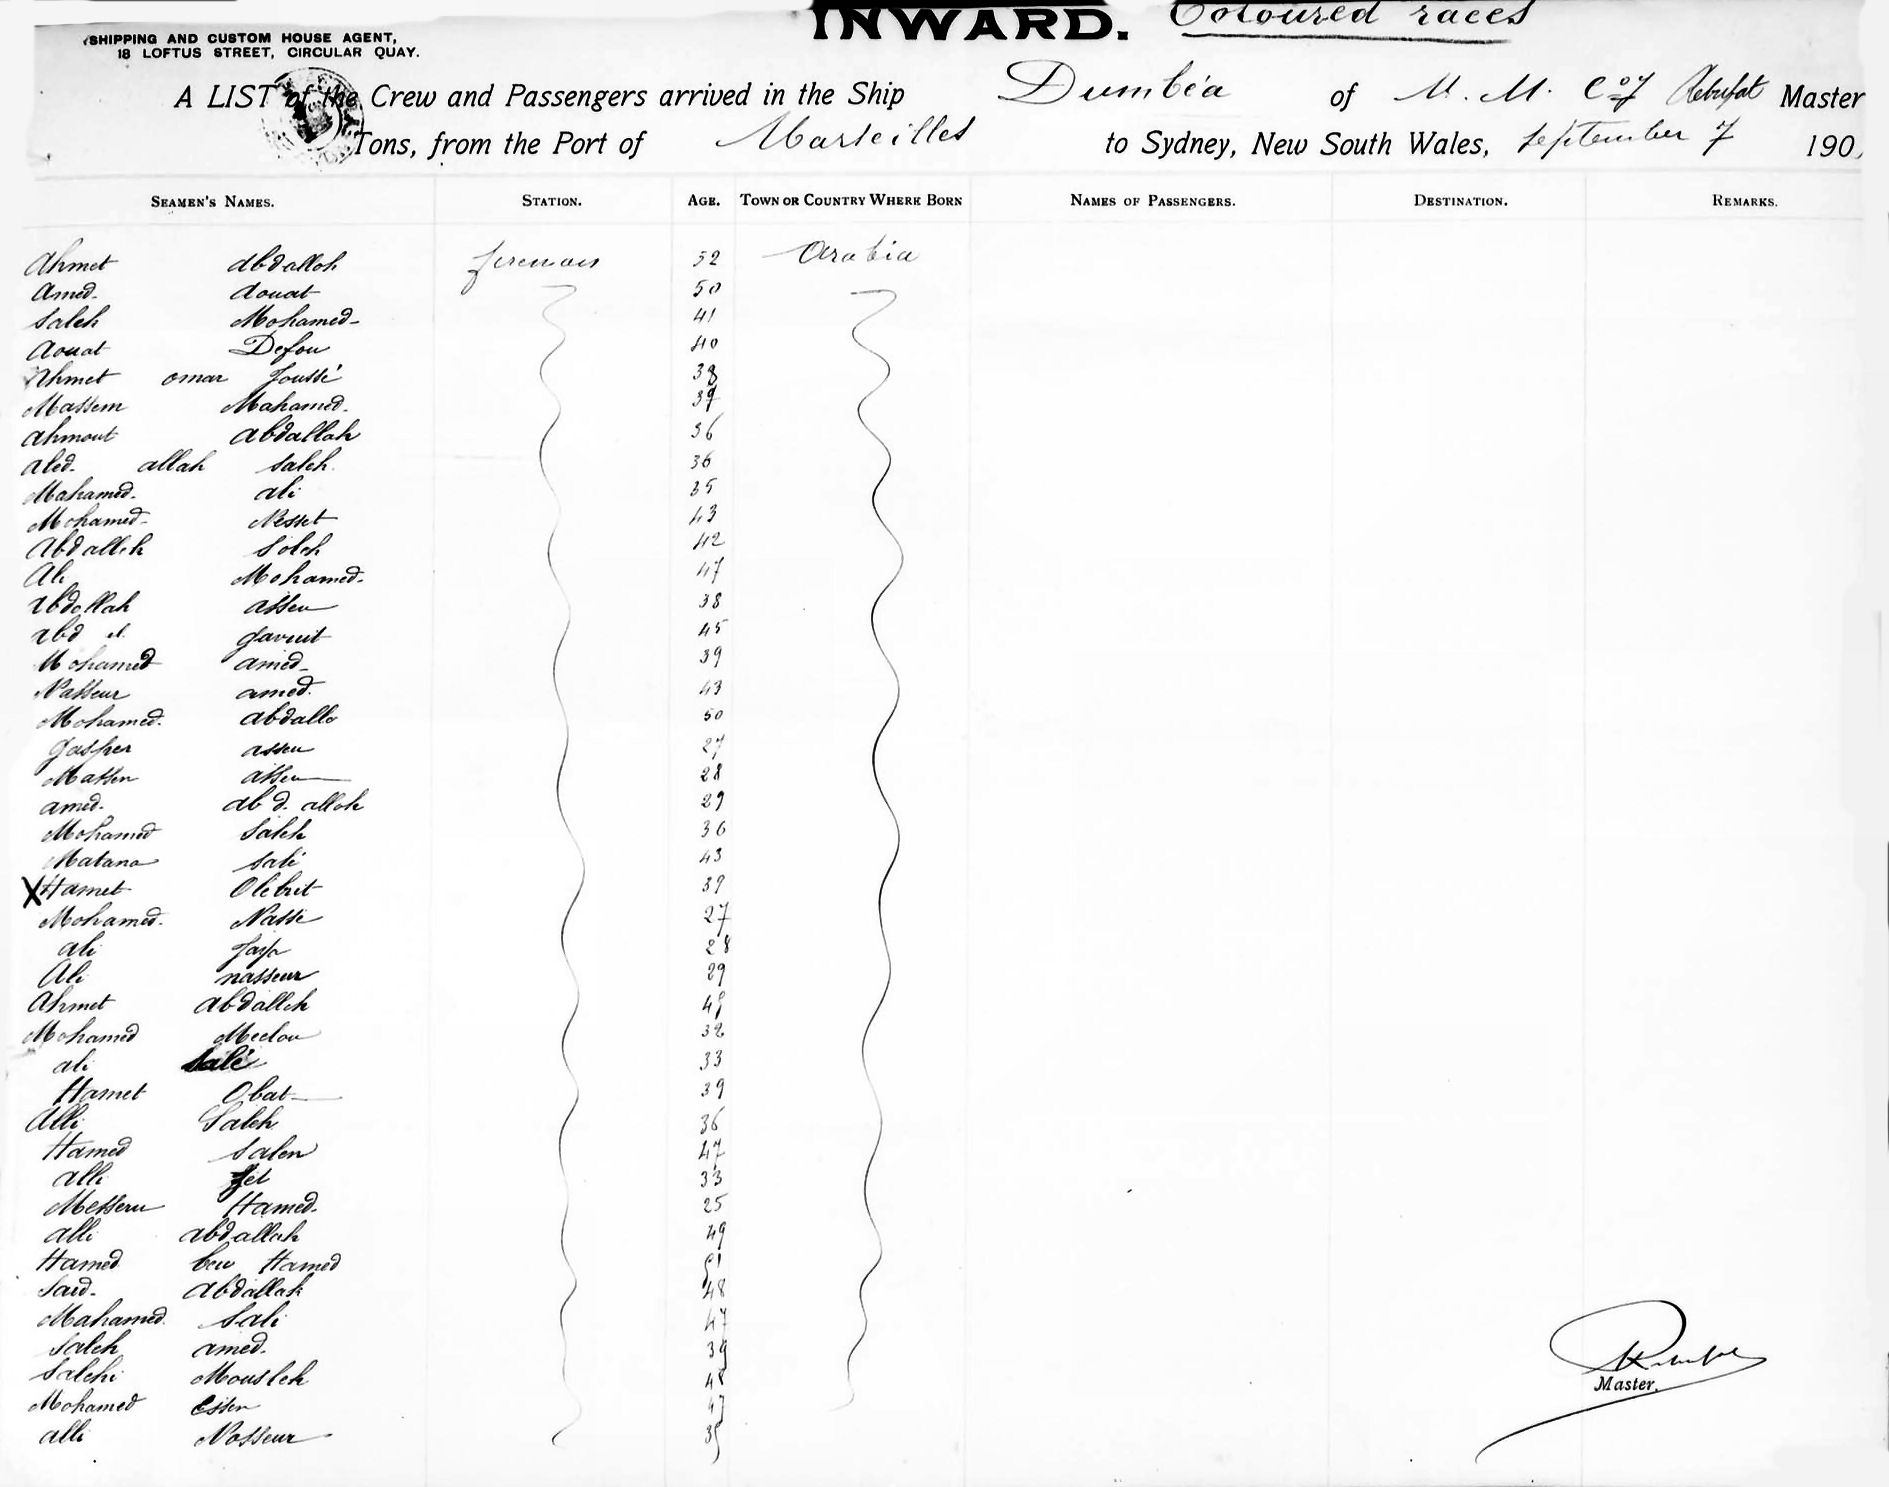 INWARD. Coloured races
SHIPPING AND CUSTOM HOUSE AGENT,
18 LOFTUS STREET, CIRCULAR QUAY.
A LIST of the Crew and Passengers arrived in the Ship Dumbéa of M. M. Coy Rebufat Master
Tons, from the Port of Marseilles to Sydney, New South Wales, September 7 190
SEAMEN'S NAMES. STATION. AGE. TOWN OR COUNTRY WHERE BORN NAMES OF PASSENGERS. DESTINATION. REMARKS.
Ahmet abdallah firemen 52 Arabia
Amed. aouat 50
Saleh Mohamed 41
Aouat Defou 40
Ahmet omar Joussé 38
Massem Mahamed. 39
Ahmout abdallah 36
abd. allah saleh. 36
Mahamed. ali 35
Mohamed Nesset 43
Abdalleh Soleh 42
Ali Mohamed 47
abdallah assen 38
abd el. 45
Mohamed amed 39
Nasseur amed. 43
Mohamed. abdalle 50
Gasper assen 27
Massen assen 28
amed. abd. allah 29
Mohamed Saleh 36
Matana sali 43
X Hamet Olebrit 39
Mohamed. Nassi 27
ali 28
Ali nasseur 29
Ahmet abdalleh 49
Mohamed Meclou 32
ali Salé 33
Hamet Obat 39
Alli Saleh 36
Hamed Salem 47
alli 33
Messeru Hamed. 25
alli abdallah 49
Hamed ben Hamed 51
Said. Abdallah 48
Mahamed. Sali 47
Saleh amed. 39
Salehi Mousleh 48
Mohamed Essen 47
alli Nosseur 35
Rebufat
Master.